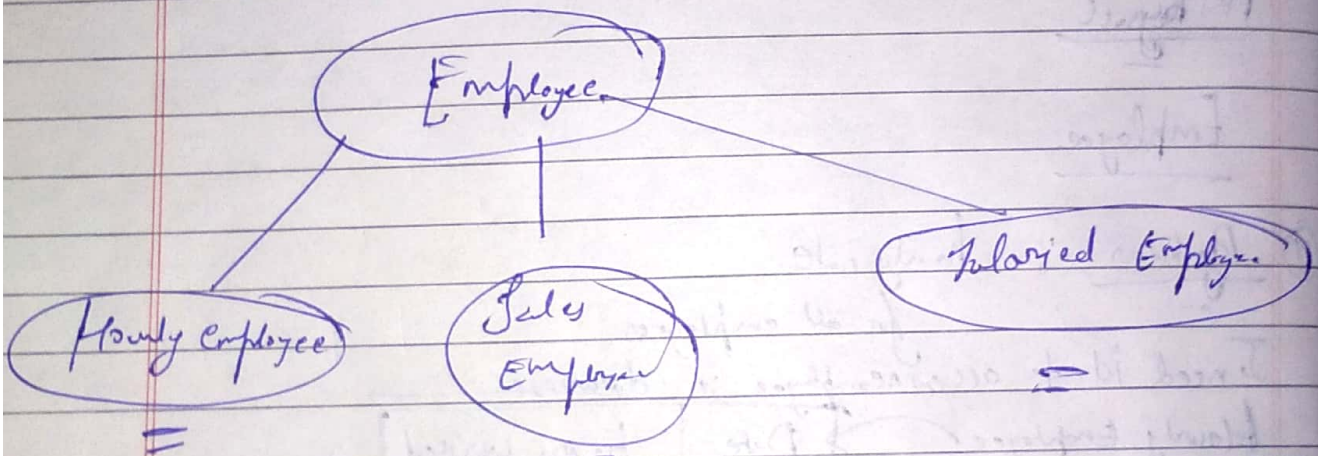 Employee
Hourly employee
Sales
Employee
Salaried Employee